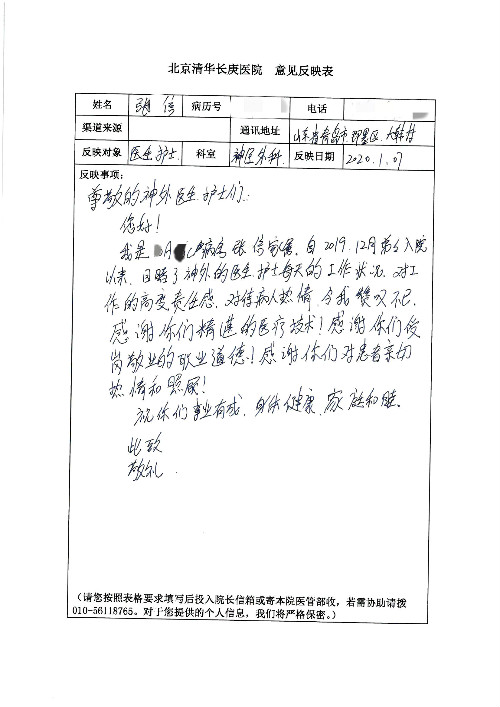 北京清华长庚医院 意见反映表
姓名 张信 病历号 电话
渠道来源 通讯地址 山东省青岛市即墨区大韩村
反映对象 医生护士 科室 神经外科 反映日期 2020.1.07
反映事项:
尊敬的神外医生护士们:
您好!
我是 月 病房 张信家属,自2019.12月 入院
以来,目睹了神外的医生护士每天的工作状况,对工
作的高度责任感,对待病人热情,令我赞叹不已,
感谢你们精湛的医疗技术!感谢你们爱
岗敬业的职业道德!感谢你们对患者亲切
热情和照顾!
祝你们事业有成,身体健康,家庭和睦.
此致
敬礼.
(请您按照表格要求填写后投入院长信箱或寄本院医管部收,若需协助请拨
010-56118765。对于您提供的个人信息,我们将严格保密。)